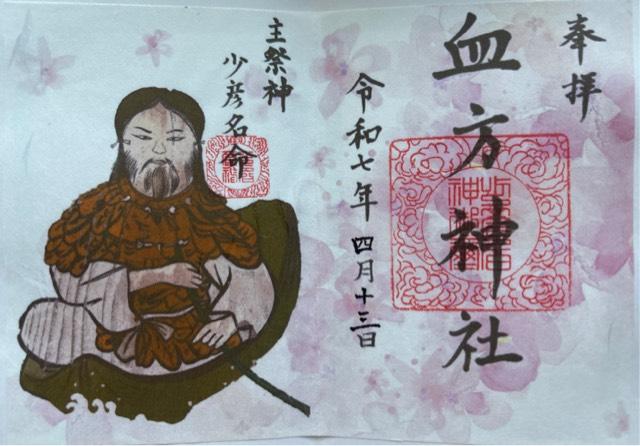 奉拝
血方神社
令和七年 四月十三日
主祭神
少彦名命